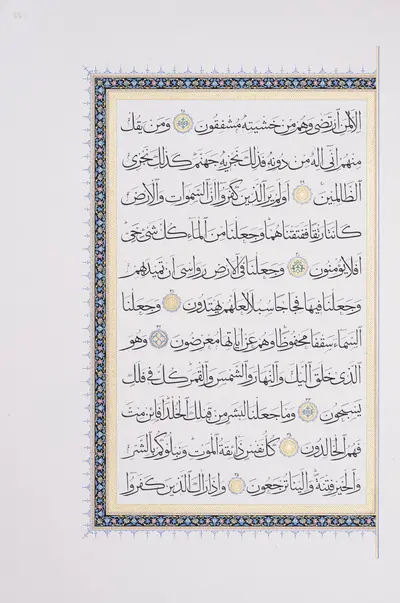 إلا لمن ارتضى وهم من خشيته مشفقون ومن يقل
منهم إني إله من دونه فذلك نجزيه جهنم كذلك نجزي
الظالمين أولم ير الذين كفروا أن السموات والأرض
كانتا رتقا ففتقناهما وجعلنا من الماء كل شيء حي
أفلا يؤمنون وجعلنا في الأرض رواسي أن تميد بهم
وجعلنا فيها فجاجا سبلا لعلهم يهتدون وجعلنا
السماء سقفا محفوظا وهم عن آياتها معرضون وهو
الذي خلق الليل والنهار والشمس والقمر كل في فلك
يسبحون وما جعلنا لبشر من قبلك الخلد أفإن مت
فهم الخالدون كل نفس ذائقة الموت ونبلوكم بالشر
والخير فتنة وإلينا ترجعون وإذا رآك الذين كفروا